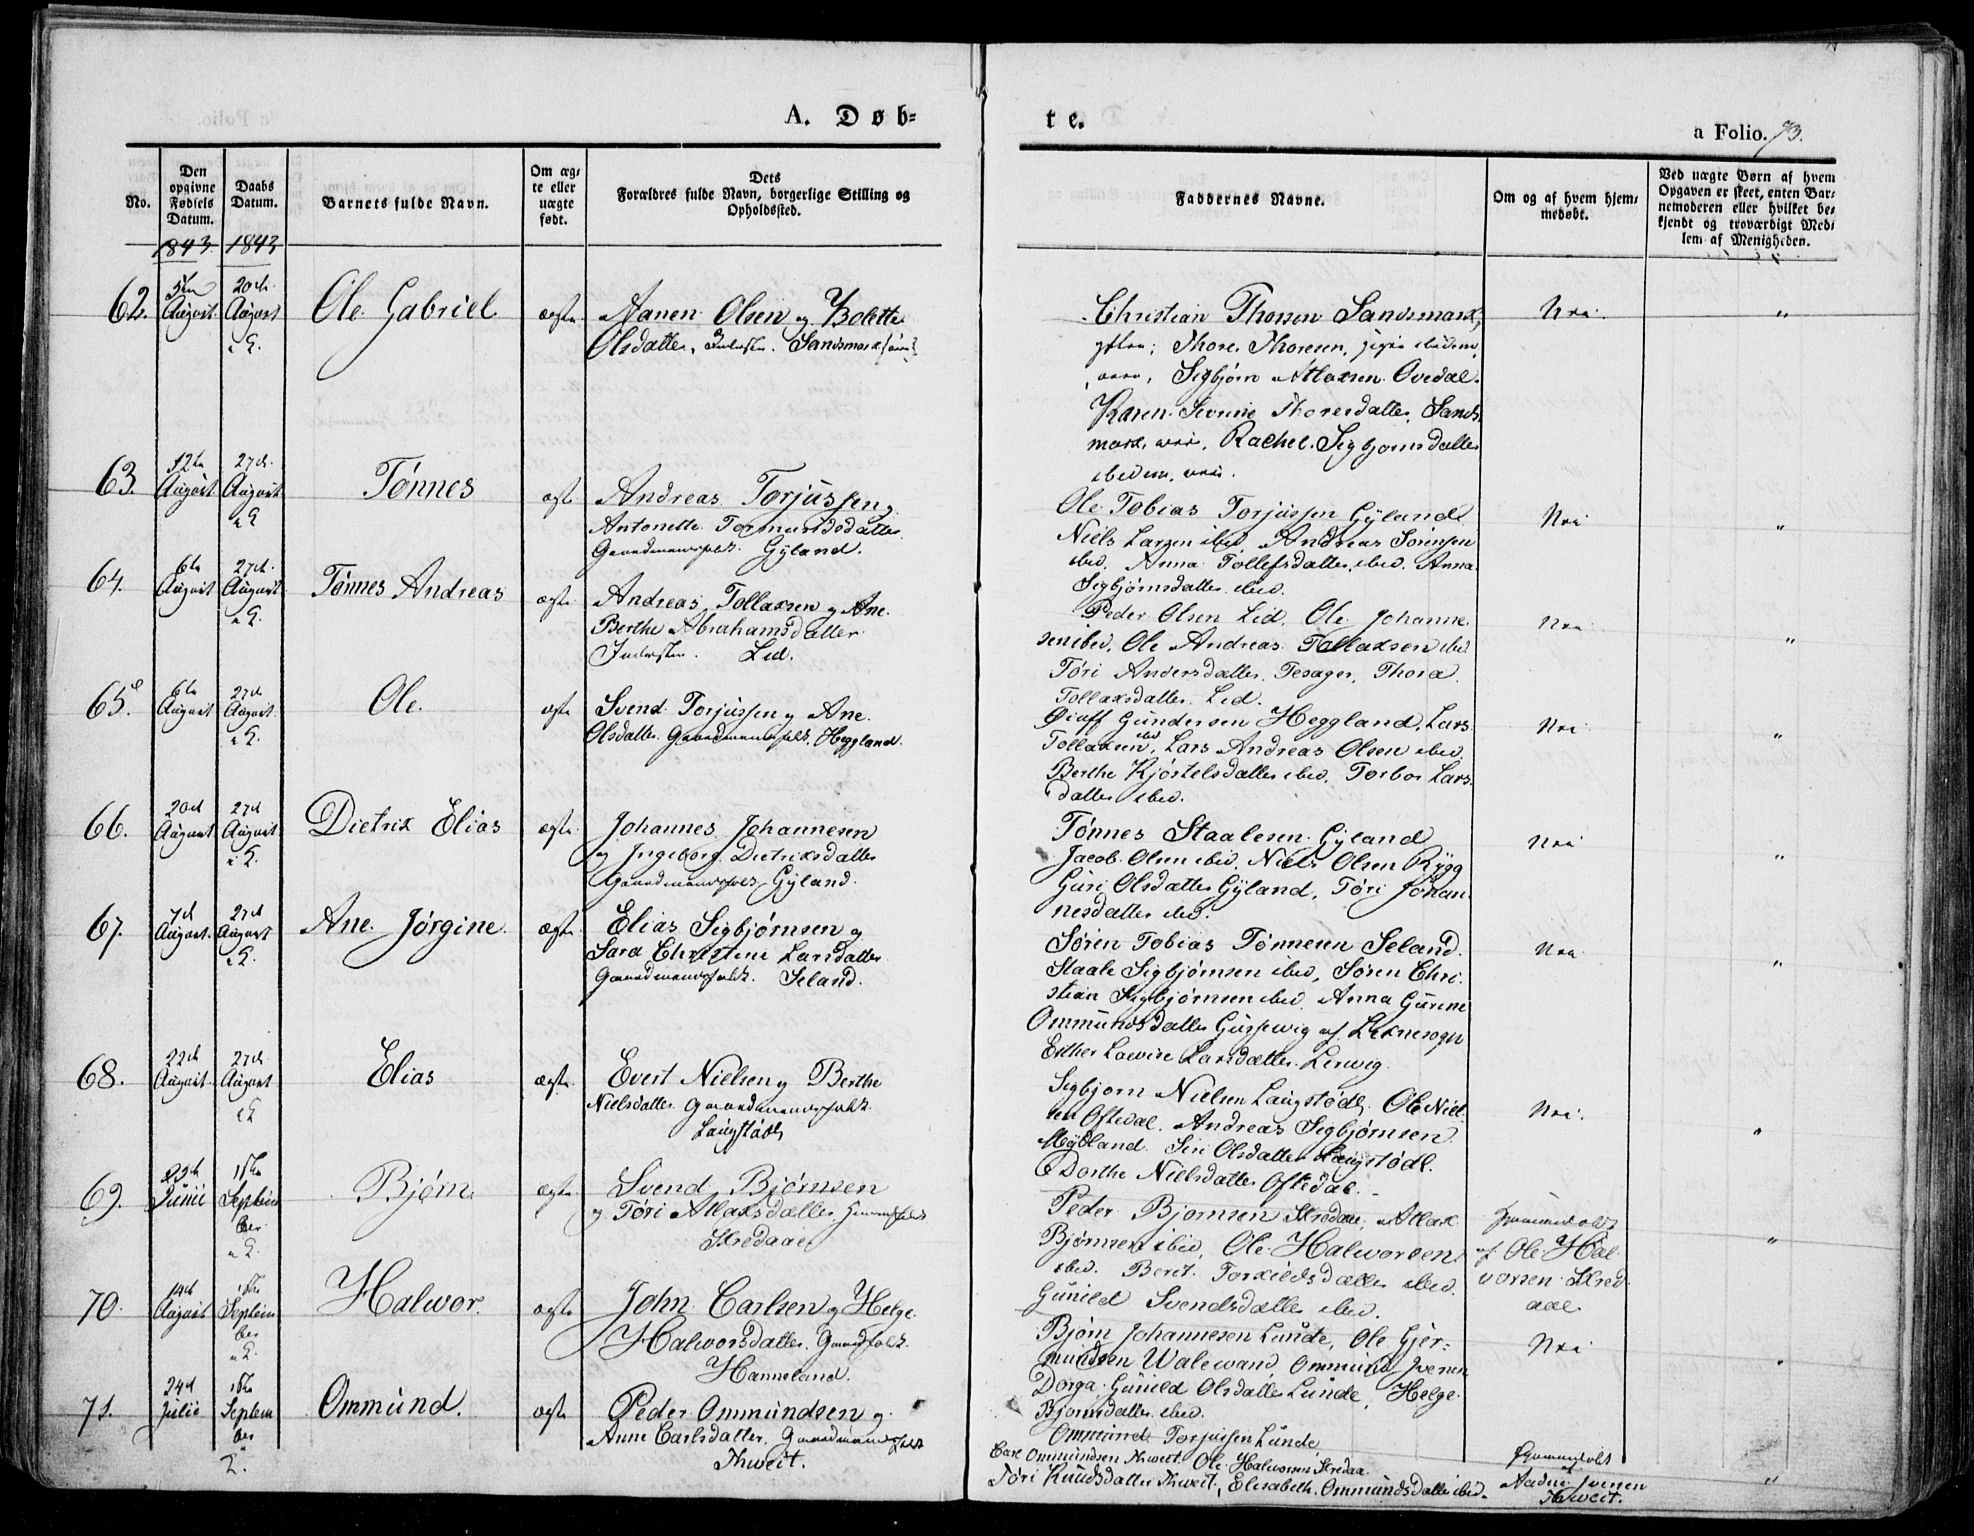 A. Døb=
te.
a Folio. 73.
No.
Den opgivne Fødsels Datum.
Daabs Datum.
Barnets fulde Navn.
Om æg= te eller uægte født.
Dets Forældres fulde Navn, borgerlige Stilling og Opholdssted.
Faddernes Navne.
Om og af hvem hjem= medøbt.
Ved uægte Børn af hvem Opgaven er skeet, enten Bar= nemoderen eller hvilket be= kjendt og troværdigt Med= lem af Menigheden.
1843. 1843
62. August August Ole Gabriel ægte Aanen Olsen og Bolette
Olsdatter, Sandsmark
Christian Thorsen Sandsmark,
Thore Thoresen,
Sigbjørn Atlaksen Ovedal.
Karen Severine Thoresdatter Sands
mark, Rachel Sigbjørnsdatter
ibidem,
Nei "
63. 12te August 27de August Tønnes ægte Andreas Torjussen og
Antonette Tormundsdatter
Gaardmandsfolk. Gyland.
Ole Tobias Torjussen Gyland
Niels Larsen ibid Andreas Sørensen
ibid. Anna Tollefsdatter ibid. Anna
Sigbjørnsdatter ibid.
Nei "
64. 6te August 27de August Tønnes Andreas ægte Andreas Tollaksen og Ane
Berthe Abrahamsdatter
Inderster. Lid.
Peder Olsen Lid. Ole Johanne
sen ibid, Ole Andreas Tollaksen ibid
Tøri Andersdatter Tesager, Thora
Tollaksdatter Lid.
Nei "
65. 6te August 27de August Ole ægte Svend Torjussen og Ane
Olsdatter Gaardmandsfolk, Heggland.
Gundersen Heggland, Lars
Tollaksen ibid, Lars Andreas Olsen ibid
Berthe Kjøstelsdatter ibid, Torbor Lars
datter ibid.
Nei "
66. 20de August 27de August Dietrik Elias ægte Johannes Johannesen
og Ingeborg Dietriksdatter
Gaardmandsfolk Gyland.
Tønnes Staalesen Gyland
Jacob Olsen ibid, Niels Olsen Rygg
Guri Olsdatter Gyland, Tøri Johan
nesdatter ibid.
Nei "
67. 7de August 27de August Ane Jørgine ægte Elias Sigbjørnsen og
Sara Christine Larsdatter
Gaardmandsfolk. Seland.
Søren Tobias Tønnesen Seland.
Staale Sigbjørnsen ibid, Søren Chri
stian Sigbjørnsen ibid Anna Gurine
Ommundsdatter Gussewig af
Esther Lovise Larsdatter Lervig.
Nei "
68. 22de August 27de August Elias ægte Evert Nielsen og Berthe
Nielsdatter Gaardmandsfolk
Laugstødl
Sigbjørn Nielsen Laugstødl, Ole Niel
sen Oftedal. Andreas Sigbjørnsen
Mydland Siri Olsdatter Laugstødl.
Dorthe Nielsdatter Oftedal.
Nei "
69. 23de Junii September Bjørn ægte Svend Bjørnsen
og Tøri Atlaksdatter
Skredaae
Peder Bjørnsen Skredaae, Atlak
Bjørnsen ibid, Ole Halvorsen
ibid. Berit Torkildsdatter ibid
Gunild Svendsdatter ibid.
Hjemmedøbt
af Ole Hal
vorsen Skred
aae "
70. 14de August September Halwor. ægte John Carlsen og Helge
Halworsdatter, Gaardfolk.
Hanneland.
Bjørn Johannesen Lunde, Ole Gjer=
mundsen Walewand Ommund Iversen
Dorga Gunild Olsdatter Lunde, Helge
Bjørnsdatter ibid.
Nei "
71. 24de Julie September Ommund. ægte Peder Ommundsen og
Anne Carlsdatter. Gaardmandsfolk
Thweit.
Ommund Torjussen Lunde,
Carl Ommundsen Thweit Ole Halvorsen Skredaa
Tøri Knudsdatter Thweit, Elisabeth Ommundsdatter ibid.
Hjemmedøbt
af Aadne Iversen
Thweit. "